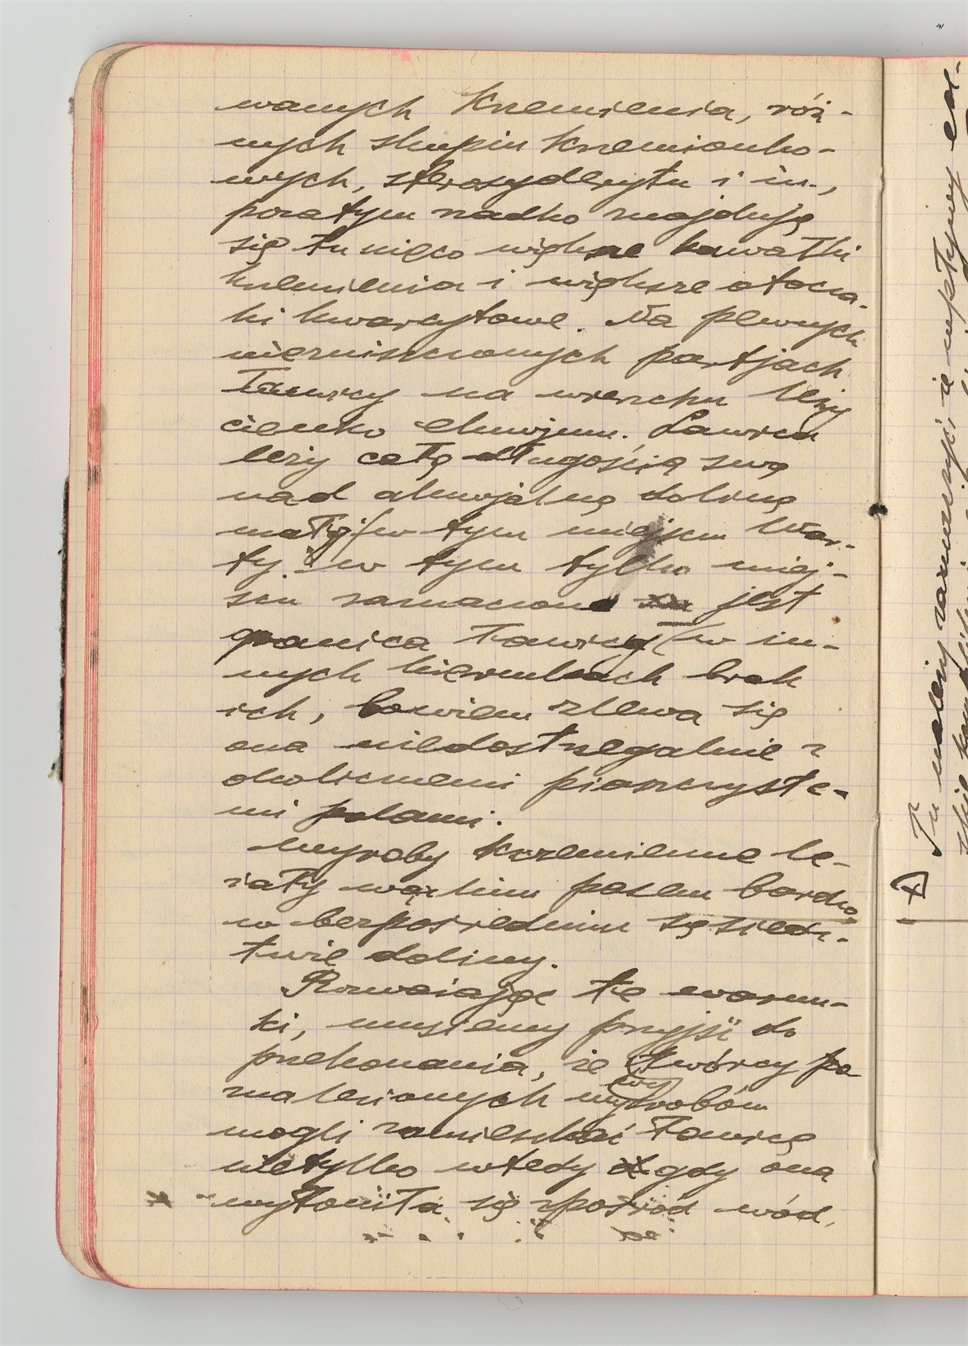 wanych krzemienia, róż-
nych skupin krzemionko-
wych, sferosyderytu i in.,
pozatym rzadko znajdują
się tu nieco większe kawałki
krzemienia i większe otocza-
ki kwarcytowe. Na pewnych
niezniszczonych partjach
ławicy na wierzchu leży
cienko eluwjum. Ławica
leży całą długością swą
nad aluwjalną doliną
małej w tym miejscu War-
ty i w tym tylko miej-
scu zaznaczona jest
granica ławicy (w in-
nych kierunkach brak
ich, bowiem zlewa się
ona niedostrzegalnie z
okolicznemi piaszczyste-
mi polami.
Wyroby krzemienne le-
żały wąskim pasem bardzo
w bezpośrednim sąsiedz-
twie doliny.
Rozważając te warun-
ki, musiemy przyjść do
przekonania, że twórcy po
znalezionych wyrobów
mogli zamieszkać ławicę
nietylko wtedy gdy ona
wyłoniła się zpośród wód.
Tu należy zaznaczyć, że